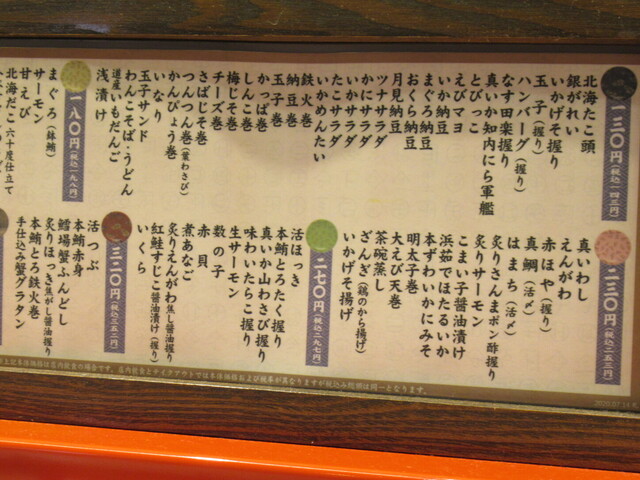 一三〇円(税込一四三円)
北海たこ頭
銀がれい
いかげそ握り
玉子(握り)
ハンバーグ(握り)
なす田楽握り
真いか知内にら軍艦
とびっこ
えびマヨ
いか納豆
まぐろ納豆
おくら納豆
月見納豆
ツナサラダ
かにサラダ
いかサラダ
たこサラダ
いかめんたい
鉄火巻
納豆巻
玉子巻
かっぱ巻
しんこ巻
梅じそ巻
チーズ巻
さばじそ巻
つんつん巻(葉わさび)
かんぴょう巻
いなり
玉子サンド
わんこそば・うどん
道産いもだんご
浅漬け
一八〇円(税込一九八円)
まぐろ(鉢鮪)
サーモン
甘えび
北海だこ六十度仕立て
二三〇円(税込二五三円)
真いわし
えんがわ
赤ほや(握り)
真鯛(活〆)
はまち(活〆)
炙りさんまポン酢握り
炙りサーモン
こまい子醤油漬け
浜茹でほたるいか
本ずわいかにみそ
明太子巻
大えび天巻
茶碗蒸し
ざんぎ(鶏のから揚げ)
いかげそ揚げ
二七〇円(税込二九七円)
活ほっき
本鮪とろたく握り
真いか山わさび握り
味わいたらこ握り
生サーモン
数の子
赤貝
煮あなご
炙りえんがわ焦し醤油握り
紅鮭すじこ醤油漬け(握り)
いくら
三二〇円(税込三五二円)
活つぶ
本鮪赤身
鱈場蟹ふんどし
炙りほっき焦がし醤油握り
本鮪とろ鉄火巻
手仕込み蟹グラタン